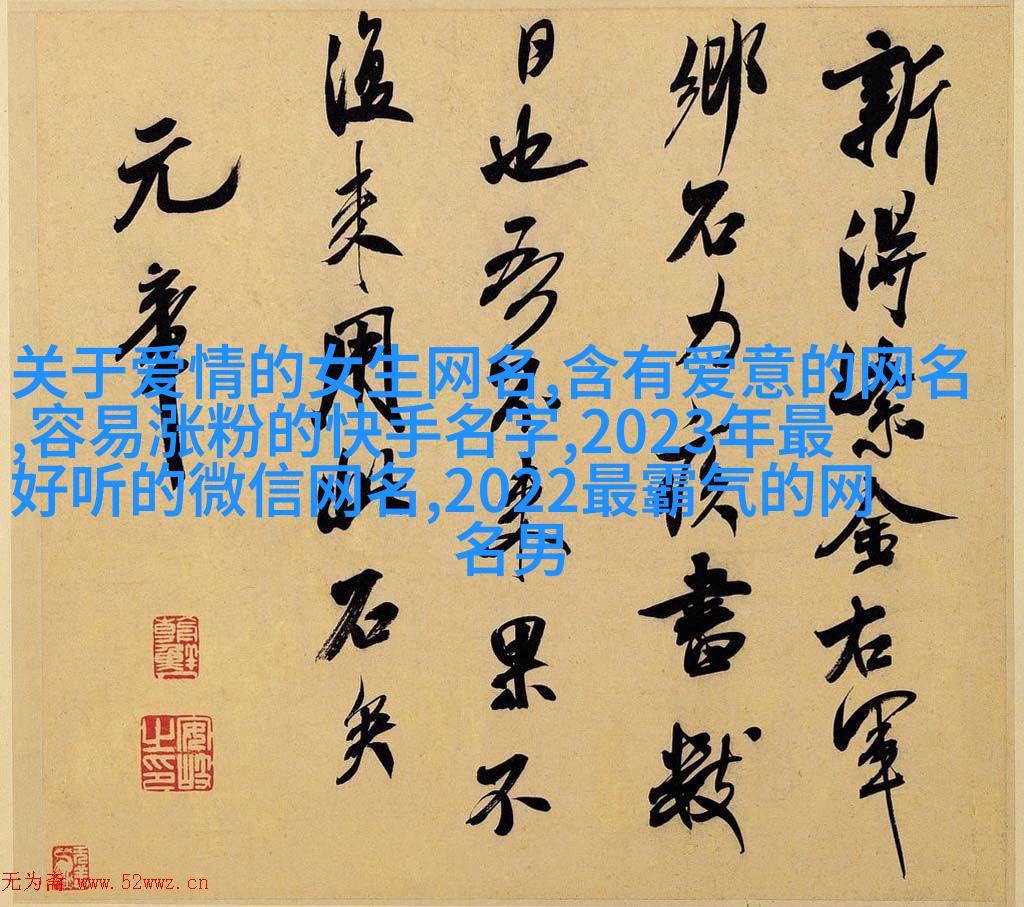 新得紫金右軍
鄉石力疾書數
日也吾不来果不
復来用此石矣
元章
关于爱情的女生网名,含有爱意的网名
,容易涨粉的快手名字,2023年最
好听的微信网名,2022最霸气的网
名男
安岐之印
无为斋 www.52wwz.cn